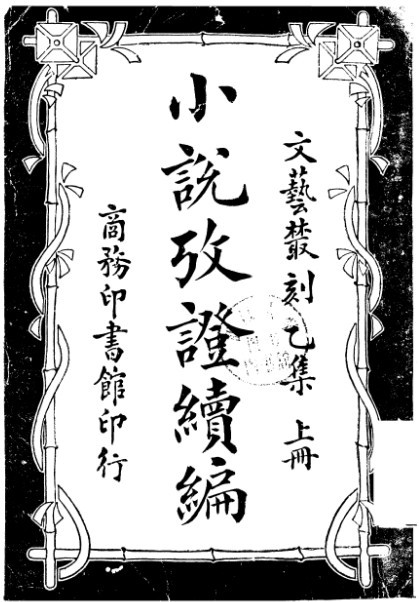 文藝叢刻乙集 上冊
小說攷證續編
商務印書館印行